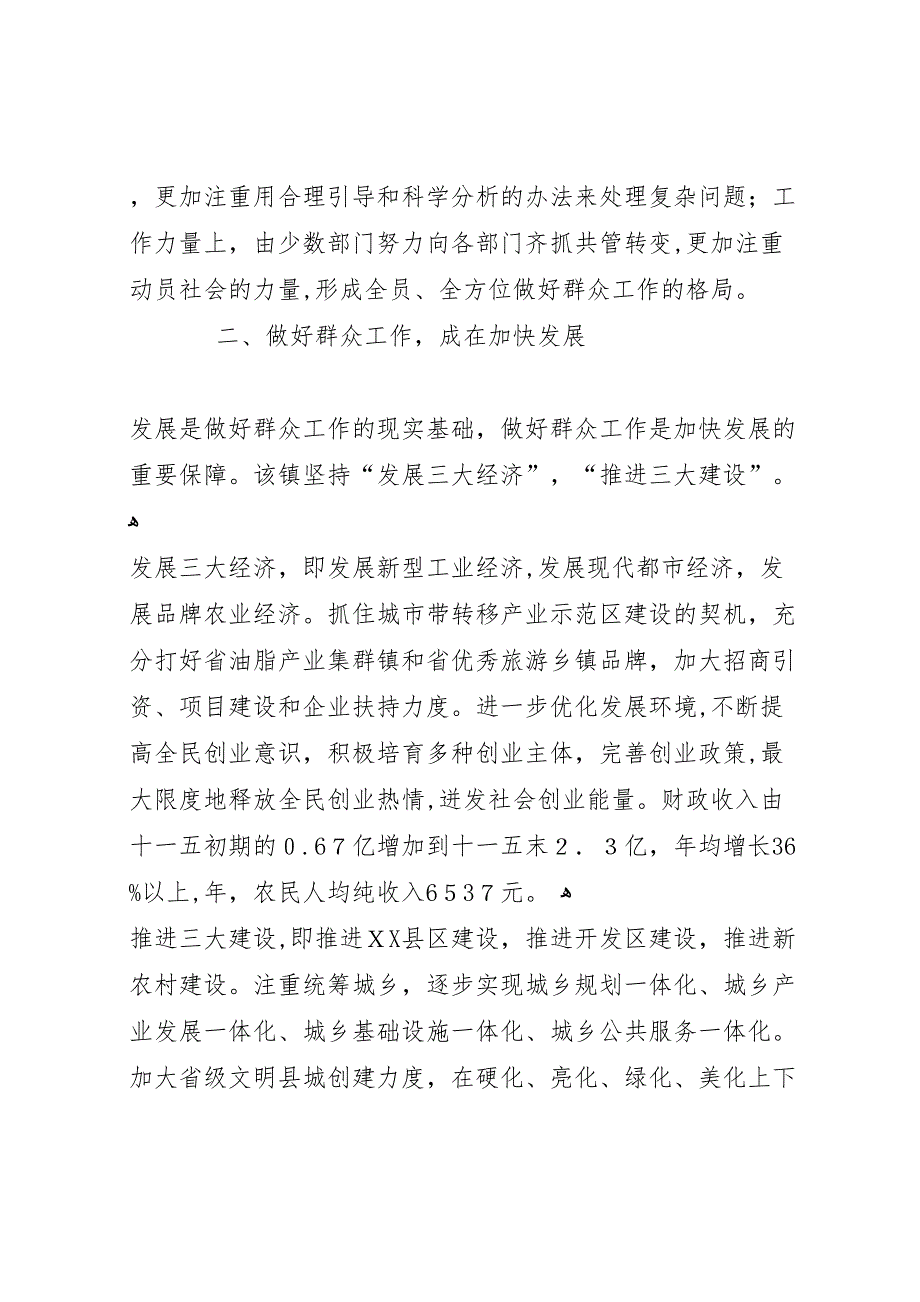 ，更加注重用合理引导和科学分析的办法来处理复杂问题；工
作力量上，由少数部门努力向各部门齐抓共管转变,更加注重
动员社会的力量,形成全员、全方位做好群众工作的格局。
二、做好群众工作，成在加快发展
发展是做好群众工作的现实基础，做好群众工作是加快发展的
重要保障。该镇坚持“发展三大经济”，“推进三大建设”。
ﻫ
发展三大经济，即发展新型工业经济,发展现代都市经济，发
展品牌农业经济。抓住城市带转移产业示范区建设的契机，充
分打好省油脂产业集群镇和省优秀旅游乡镇品牌，加大招商引
资、项目建设和企业扶持力度。进一步优化发展环境,不断提
高全民创业意识，积极培育多种创业主体，完善创业政策,最
大限度地释放全民创业热情,迸发社会创业能量。财政收入由
十一五初期的０.６７亿增加到十一五末２．３亿，年均增长36
%以上,年，农民人均纯收入6５37元。 ﻫ
推进三大建设,即推进ＸX县区建设，推进开发区建设，推进新
农村建设。注重统筹城乡，逐步实现城乡规划一体化、城乡产
业发展一体化、城乡基础设施一体化、城乡公共服务一体化。
加大省级文明县城创建力度，在硬化、亮化、绿化、美化上下